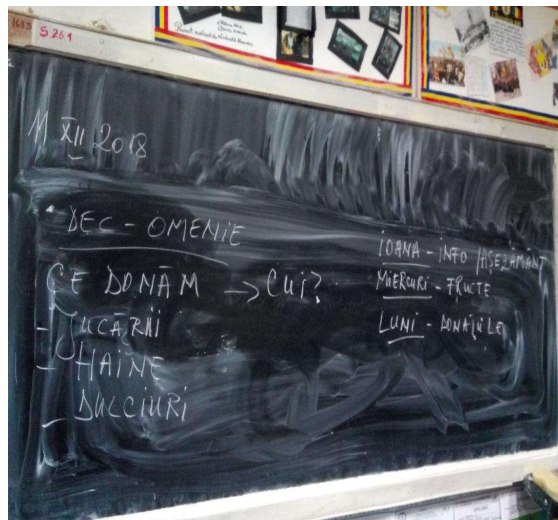 1613
S 261
11 XII 2018
DEC - OMENIE
CE DONĂM → CUI?
- JUCĂRII
- HAINE
- DULCIURI
IOANA - INFO /AȘEZĂMÂNT
MIERCURI - FRUCTE
LUNI - DONAȚIILE